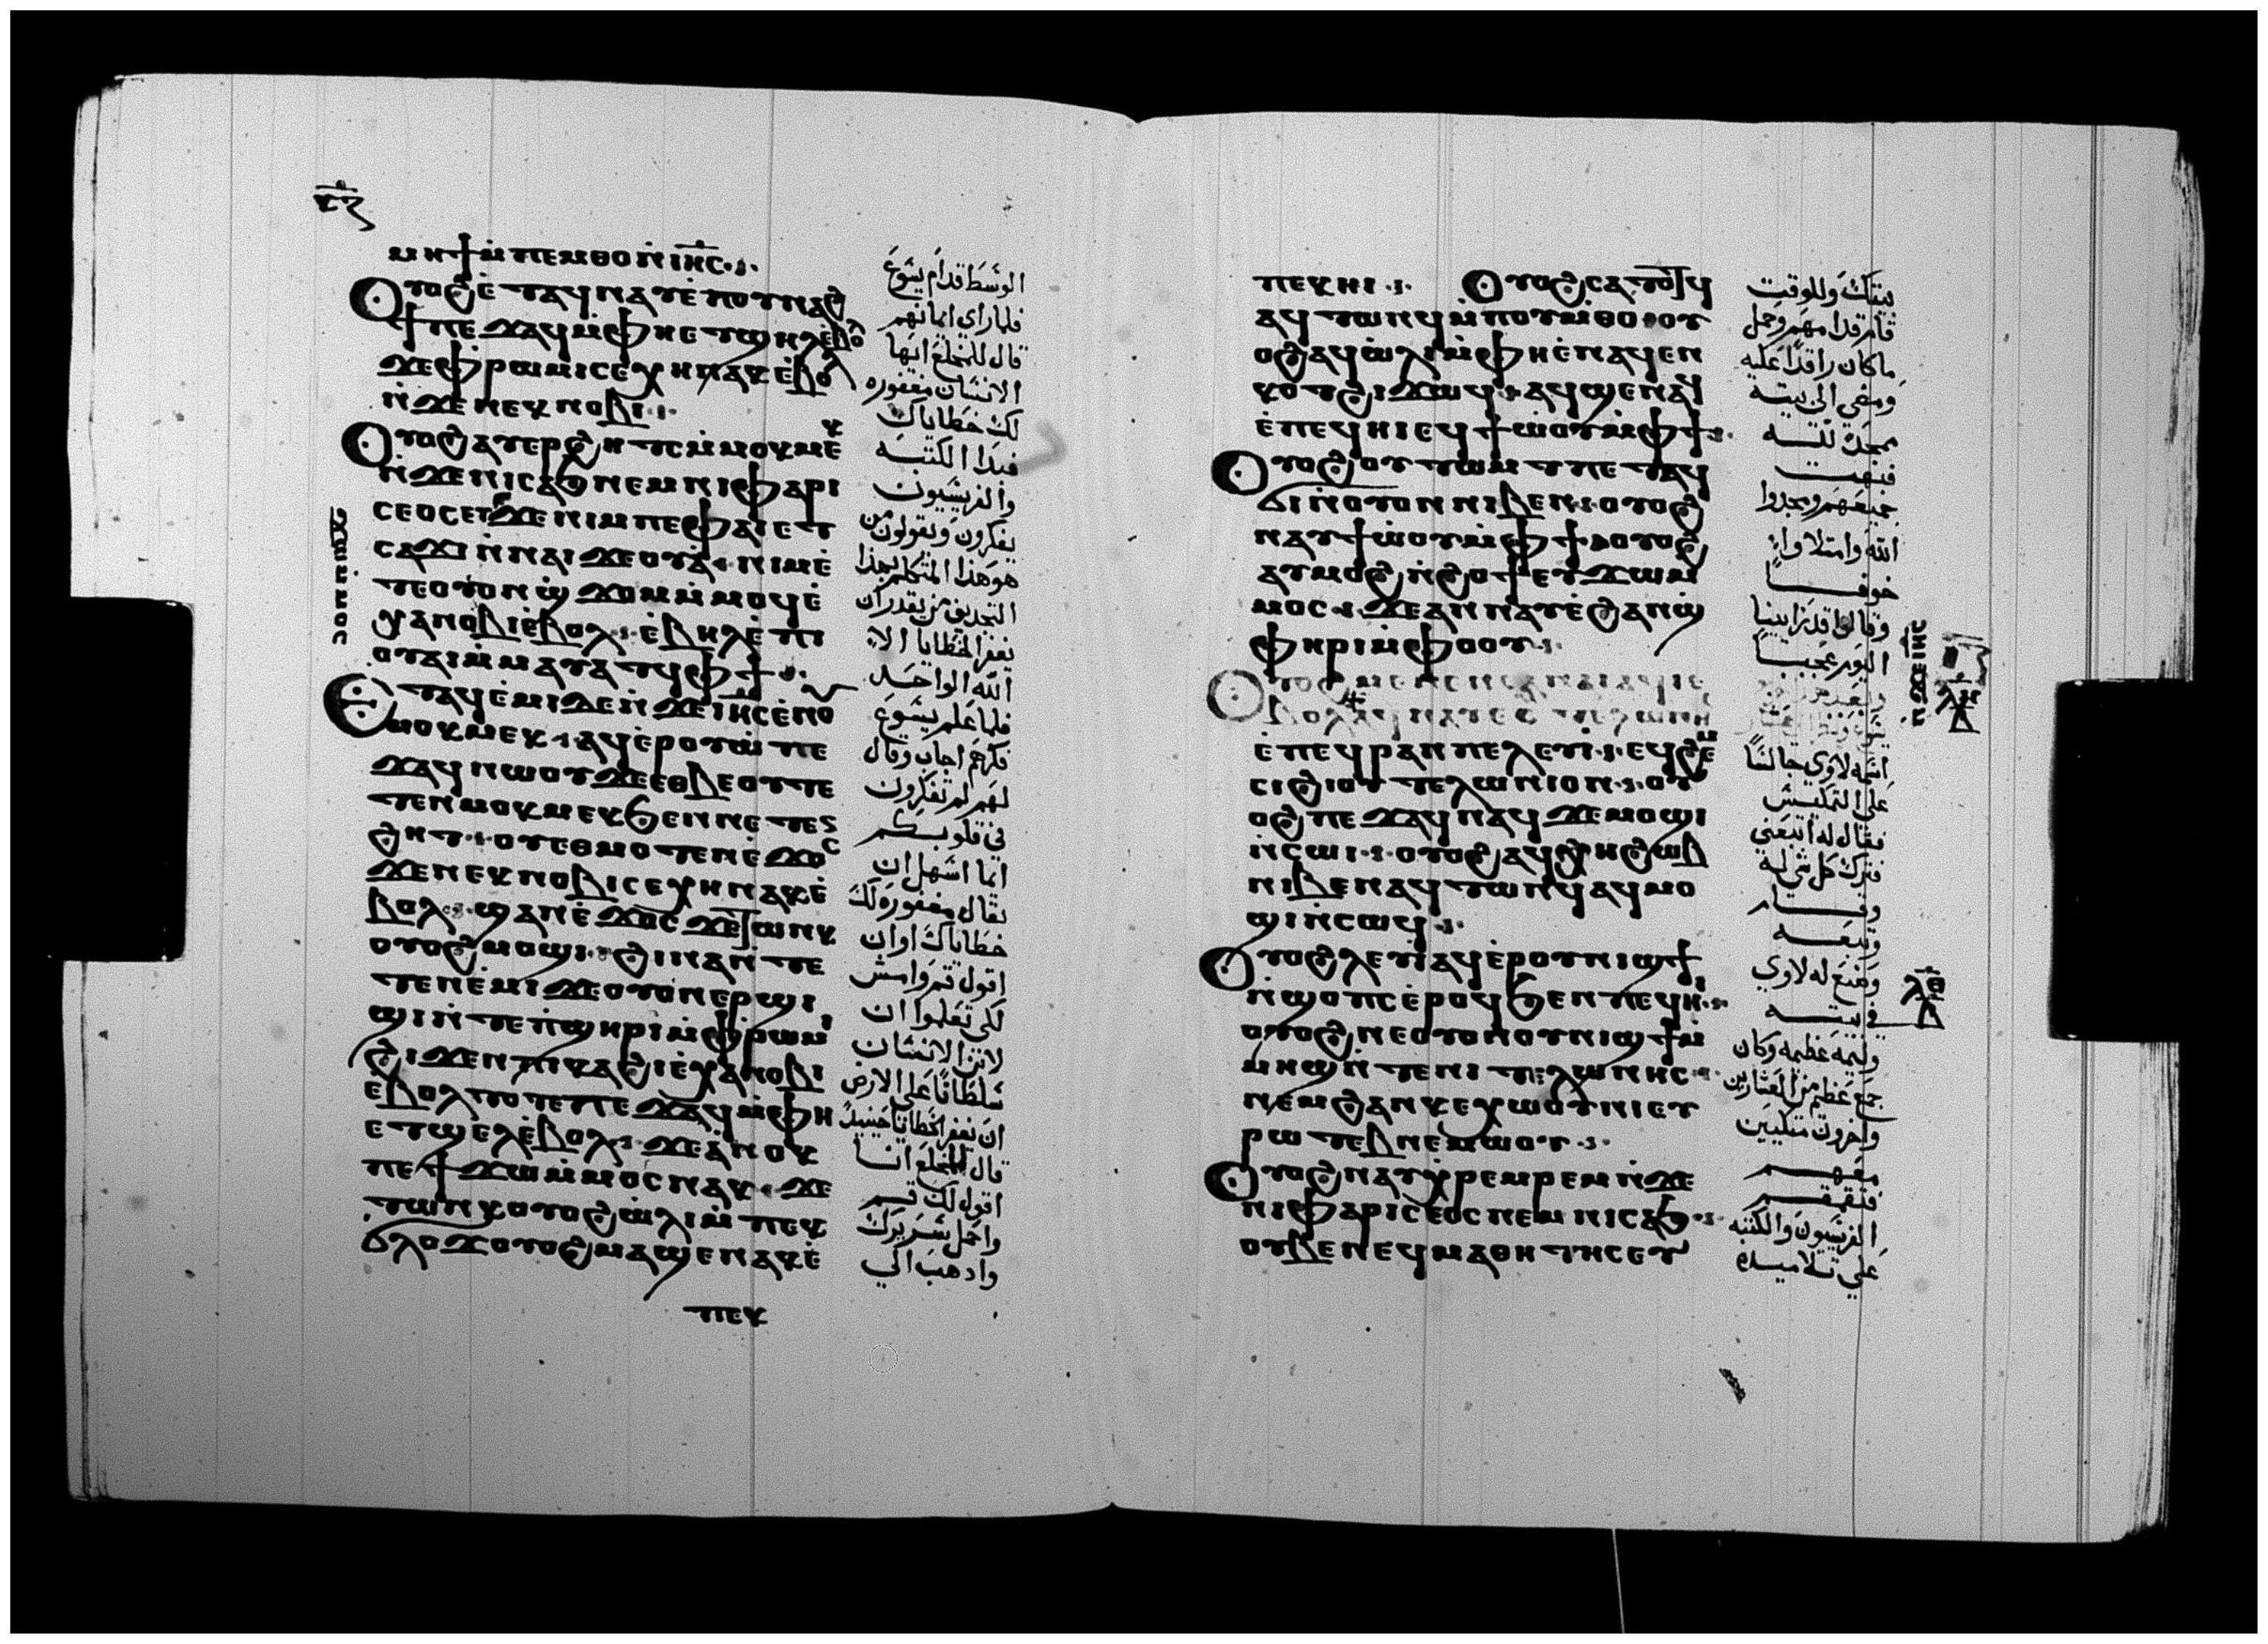 ⲙⲏϯ ⲙ̀ⲡⲉⲙⲑⲟ ⲛ̀ⲓⲏ̅ⲥ̅
ⲟⲩⲟϩ ⲉ̀ⲧⲁϥⲛⲁⲩ ⲉ̀ⲡⲟⲩⲛⲁϩ
ϯ ⲡⲉϫⲁϥ ⲙ̀ⲫⲏ ⲉⲧϣⲏⲗ ⲉ̀ⲃⲟⲗ
ϫⲉ ⲫⲣⲱⲙⲓ ⲥⲉⲭⲏ ⲛⲁⲕ ⲉ̀ⲃⲟⲗ
ⲛ̀ϫⲉ ⲛⲉⲕⲛⲟⲃⲓ
ⲟⲩⲟϩ ⲁⲩⲉⲣϩⲏⲧⲥ ⲙ̀ⲙⲟⲕⲙⲉⲕ
ⲛ̀ϫⲉ ⲛⲓⲥⲁϧ ⲛⲉⲙ ⲛⲓⲫⲁⲣⲓ
ⲥⲉⲟⲥ ϫⲉ ⲛⲓⲙ ⲡⲉ ⲫⲁⲓ ⲉⲧ
ⲥⲁϫⲓ ⲛ̀ⲛⲁⲓ ϫⲉⲟⲩⲁ̀ ⲛⲓⲙ ⲉ̀
ⲧⲉ ⲟⲩⲟⲛ ϣ̀ϫⲟⲙ ⲙ̀ⲙⲟϥ ⲉ̀
ⲭⲁ ⲛⲟⲃⲓ ⲉ̀ⲃⲟⲗ ⲉ̀ⲃⲏⲗ ⲉ̀ⲡⲓ
ⲟⲩⲁⲓ ⲙ̀ⲙⲁⲩⲁⲧϥ ⲫϯ
ⲉⲧⲁϥⲉ̀ⲙⲓ ⲇⲉ ⲛ̀ϫⲉ ⲓⲏ̅ⲥ̅ ⲉ̀ⲛⲟⲩ
ⲙⲟⲕⲙⲉⲕ ⲁϥⲉ̀ⲣⲟⲩⲱ̀ ⲡⲉ
ϫⲁϥ ⲛⲱⲟⲩ ϫⲉ ⲉⲑⲃⲉ ⲟⲩ ⲧⲉ
ⲧⲉⲛⲙⲟⲕⲙⲉⲕ ϧⲉⲛ ⲛⲉⲧⲉⲛ
ϩⲏⲧ ⲟⲩ ⲉⲑⲙⲟⲧⲉⲛ ⲉ̀ϫⲟⲥ
ϫⲉ ⲛⲉⲕⲛⲟⲃⲓ ⲥⲉⲭⲏ ⲛⲁⲕ ⲉ̀
ⲃⲟⲗ ϣⲁⲛ ⲉ̀ϫⲟⲥ ϫⲉ ⲧⲱⲛⲕ
ⲟⲩⲟϩ ⲙⲟϣⲓ ϩⲓⲛⲁ ⲛ̀ⲧⲉ
ⲧⲉⲛⲉ̀ⲙⲓ ϫⲉ ⲟⲩⲟⲛ ⲉⲣϣⲓ
ϣⲓ ⲛ̀ⲧⲉ ⲡ̀ϣⲏⲣⲓ ⲙ̀ⲫⲣⲱⲙⲓ
ϩⲓϫⲉⲛ ⲡⲓⲕⲁϩⲓ ⲉ̀ⲭⲁ ⲛⲟⲃⲓ
ⲉ̀ⲃⲟⲗ ⲧⲟⲧⲉ ⲡⲉϫⲁϥ ⲙ̀ⲫⲏ
ⲉⲧϣⲉⲗ ⲉ̀ⲃⲟⲗ ϫⲉ ⲁ̀ⲛⲟⲕ
ⲡⲉϯϫⲱ ⲙ̀ⲙⲟⲥ ⲛⲁⲕ ϫⲉ
ⲧⲱⲛⲕ ⲟⲩⲟϩ ⲱ̀ⲗⲓ ⲙ̀ⲡⲉⲕ
ϭⲗⲟϫ ⲟⲩⲟϩ ⲙⲁϣⲉⲛⲁⲕ ⲉ̀
ⲡⲉⲕ
الوسط قدام يشوع
فلما راى ايمانهم
قال للمخلع ايها
الانسان مغفوره
لك خطاياك
فبدا الكتبه
والفريسيون
يفكرون ويقولون من
هو هذا المتكلم بهذا
التجديف من يقدر ان
يغفر الخطايا الا
الله الواحد
فلما علم يشوع
فكرهم اجاب وقال
لهم لم تفكرون
في قلوبكم
ايما اسهل ان
يقال مغفوره لك
خطاياك او ان
اقول قم وامش
لكى تعلموا ان
لابن الانسان
سلطانا على الارض
ان يغفر الخطايا حينيذ
قال للمخلع انا
اقول لك قم
واحمل سريرك
واذهب الى
ⲡⲉⲕⲏⲓ ⲟⲩⲟϩ ⲥⲁⲧⲟⲧϥ
ⲁϥⲧⲱⲛϥ ⲙ̀ⲡⲟⲩⲙ̀ⲑⲟ ⲟⲩ
ⲟϩ ⲁϥⲱ̀ⲗⲓ ⲙ̀ⲫⲏ ⲉ̀ⲛⲁϥⲉⲛ
ⲕⲟⲧ ϩⲓϫⲱϥ ⲁϥϣⲉⲛⲁϥ
ⲉ̀ⲡⲉϥⲏⲓ ⲉϥϯⲱ̀ⲟⲩ ⲙ̀ⲫϯ
ⲟⲩⲟϩ ⲟⲩⲧⲱⲙⲧ ⲡⲉⲧⲁϥ
ϭⲓ ⲛ̀ⲟⲩⲟⲛ ⲛⲓⲃⲉⲛ ⲟⲩⲟϩ
ⲛⲁⲩϯⲱ̀ⲟⲩ ⲙ̀ⲫϯ ⲟⲩⲟϩ
ⲁⲩⲙⲟϩ ⲛ̀ϩⲟϯ ⲉⲩϫⲱ ⲙ̀
ⲙⲟⲥ ϫⲉ ⲁⲛⲛⲁⲩ ⲉ̀ϩⲁⲛϣ
ⲫⲏⲣⲓ ⲙ̀ⲫⲟⲟⲩ
ⲟⲩⲟϩ ⲙⲉⲛⲉⲛⲥⲁ ⲛⲁⲓ ⲁϥⲓ̀ ⲉ̀
ⲃⲟⲗ ⲁϥⲛⲁⲩ ⲉ̀ⲟⲩⲧⲉⲗⲱⲛⲏⲥ
ⲉ̀ⲡⲉϥⲣⲁⲛ ⲡⲉ ⲗⲉⲩⲓ ⲉϥϩⲉⲙ
ⲥⲓ ϩⲓ ⲟⲩⲧⲉⲗⲱⲛⲓⲟⲛ ⲟⲩ
ⲟϩ ⲡⲉϫⲁϥ ⲛⲁϥ ϫⲉ ⲙⲟϣⲓ
ⲛ̀ⲥⲱⲓ ⲟⲩⲟϩ ⲁϥⲭⲏ ϩⲱⲃ
ⲛⲓⲃⲉⲛ ⲁϥⲧⲱⲛϥ ⲁϥⲙⲟ
ϣⲓ ⲛ̀ⲥⲱϥ
ⲟⲩⲟϩ ⲗⲉⲩⲓ ⲁϥⲉ̀ⲣ ⲟⲩⲛⲓϣϯ
ⲛ̀ϣⲟⲡⲥ ⲉ̀ⲣⲟϥ ϧⲉⲛ ⲡⲉϥⲏⲓ
ⲟⲩⲟϩ ⲛⲉ ⲟⲩⲟⲛ ⲟⲩⲛⲓϣϯ ⲙ̀
ⲙⲏϣ ⲛ̀ⲧⲉ ⲛⲓⲧⲉⲗⲱⲛⲏⲥ
ⲛⲉⲙ ϩⲁⲛⲕⲉⲭⲱⲟⲩⲛⲓ ⲉⲩ
ⲣⲱⲧⲉⲃ ⲛⲉⲙⲱⲟⲩ
ⲟⲩⲟϩ ⲛⲁⲩⲭⲣⲉⲙⲣⲉⲙ ⲛ̀ϫⲉ
ⲛⲓⲫⲁⲣⲓⲥⲉⲟⲥ ⲛⲉⲙ ⲛⲓⲥⲁϧ
ⲟⲩⲃⲉ ⲛⲉϥⲙⲁⲑⲏⲧⲏⲥ ⲉⲩ
بيتك وللوقت
قام قدامهم وحمل
ما كان راقدا عليه
ومضى الى بيته
يمجد لله
فبهت
جميعهم ومجدوا
الله وامتلاوا
خوفا
وقالوا قد راينا
اليوم عجبا
اسمه لاوي جالسا
على المكس
فقال له اتبعني
فترك كل شى له
وقام
وتبعه
وصنع له لاوي
في بيته
وليمه عظيمه وكان
جمع عظيم من العشارين
واخرون متكيين
معهم
فتقمقم
الفريسيون والكتبه
على تلاميذه
ⲗⲏ
ⲗⲑ